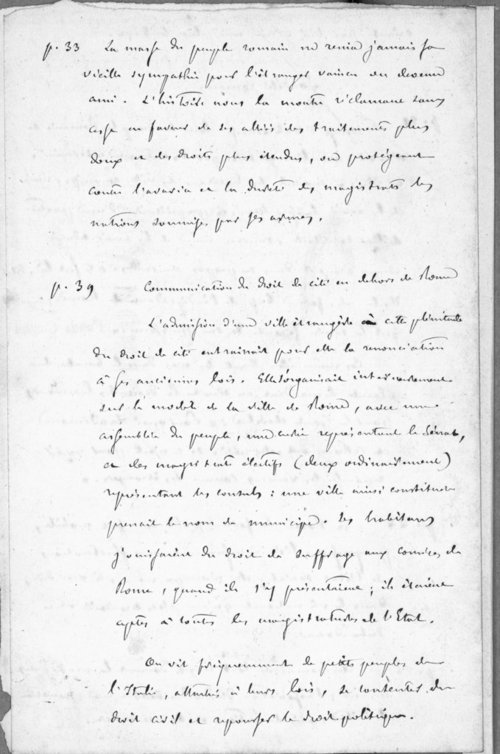 p. 33 La masse du peuple romain ne renia jamais sa
vieille sympathie pour l'étranger vaincu ou devenu
ami. L'histoire nous la montre réclamant sans
cesse en faveur de ses alliés des traitements plus
doux et des droits plus étendus, ou protégeant
contre l'avarice et la dureté des magistrats les
nations soumises par ses armes.
p. 39 Communication du droit de cité en dehors de Rome
L'admission d'une ville étrangère à cette plénitude
du droit de cité entrainait pour elle la renonciation
à ses anciennes lois. Elle s'organisait intérieurement
sur le modèle de la ville de Rome, avec une
assemblée du peuple, une curie représentant le Sénat,
et des magistrats électifs (deux ordinairement)
représentant les consuls : une ville ainsi constituée
prenait le nom de municipe. Ses habitans
jouissaient du droit de suffrage aux comices de
Rome, quand ils s'y présentaient ; ils étaient
aptes à toutes les magistratures de l'Etat.
On vit fréquemment de petits peuples de
l'Italie, attachés à leurs lois, se contenter du
droit civil et repousser le droit politique.